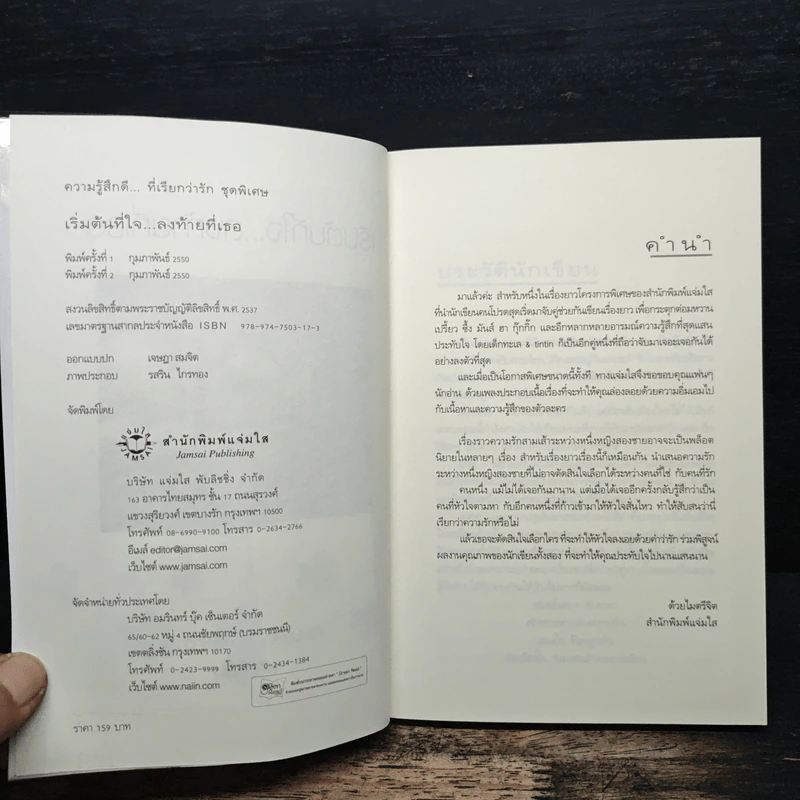 ความรู้สึกดี... ที่เรียกว่ารัก ชุดพิเศษ
เริ่มต้นที่ใจ...ลงท้ายที่เธอ
พิมพ์ครั้งที่ 1 กุมภาพันธ์ 2550
พิมพ์ครั้งที่ 2 กุมภาพันธ์ 2550
สงวนลิขสิทธิ์ตามพระราชบัญญัติลิขสิทธิ์ พ.ศ. 2537
เลขมาตรฐานสากลประจำหนังสือ ISBN 978-974-7503-17-3
ออกแบบปก เจษฎา สมจิต
ภาพประกอบ รสริน ไกรทอง
จัดพิมพ์โดย
แจ่มใส
JAMSAI
สำนักพิมพ์แจ่มใส
Jamsai Publishing
บริษัท แจ่มใส พับลิชชิ่ง จำกัด
163 อาคารไทยสมุทร ชั้น 17 ถนนสุรวงศ์
แขวงสุริยวงศ์ เขตบางรัก กรุงเทพฯ 10500
โทรศัพท์ 08-6990-9100 โทรสาร 0-2634-2766
อีเมล์ editor@jamsai.com
เว็บไซต์ www.jamsai.com
จัดจำหน่ายทั่วประเทศโดย
บริษัท อมรินทร์ บุ๊ค เซ็นเตอร์ จำกัด
65/60-62 หมู่ 4 ถนนชัยพฤกษ์ (บรมราชชนนี)
เขตตลิ่งชัน กรุงเทพฯ 10170
โทรศัพท์ 0-2423-9999 โทรสาร 0-2434-1384
เว็บไซต์ www.naiin.com
ราคา 159 บาท
คำนำ
มาแล้วค่ะ สำหรับหนึ่งในเรื่องยาวโครงการพิเศษของสำนักพิมพ์แจ่มใส
ที่นำนักเขียนคนโปรดสุดเริ่ดมาจับคู่ช่วยกันเขียนเรื่องยาว เพื่อกระตุกต่อมหวาน
เปรี้ยว ซึ้ง มันส์ ฮา กุ๊กกิ๊ก และอีกหลากหลายอารมณ์ความรู้สึกที่สุดแสน
ประทับใจ โดยเด็กทะเล & tintin ก็เป็นอีกคู่หนึ่งที่ถือว่าจับมาเจอะเจอกันได้
อย่างลงตัวที่สุด
และเมื่อเป็นโอกาสพิเศษขนาดนี้ทั้งที ทางแจ่มใสจึงขอขอบคุณแฟนๆ
นักอ่าน ด้วยเพลงประกอบเนื้อเรื่องที่จะทำให้คุณล่องลอยด้วยความอิ่มเอมไป
กับเนื้อหาและความรู้สึกของตัวละคร
เรื่องราวความรักสามเส้าระหว่างหนึ่งหญิงสองชายอาจจะเป็นพล็อต
นิยายในหลายๆ เรื่อง สำหรับเรื่องยาวเรื่องนี้ก็เหมือนกัน นำเสนอความรัก
ระหว่างหนึ่งหญิงสองชายที่ไม่อาจตัดสินใจเลือกได้ระหว่างคนที่ใช่ กับคนที่รัก
คนหนึ่ง แม้ไม่ได้เจอกันมานาน แต่เมื่อได้เจออีกครั้งกลับรู้สึกว่าเป็น
คนที่หัวใจตามหา กับอีกคนหนึ่งที่ก้าวเข้ามาให้หัวใจสั่นไหว ทำให้สับสนว่านี่
เรียกว่าความรักหรือไม่
แล้วเธอจะตัดสินใจเลือกใคร ที่จะทำให้หัวใจลงเอยด้วยคำว่ารัก ร่วมพิสูจน์
ผลงานคุณภาพของนักเขียนทั้งสอง ที่จะทำให้คุณประทับใจไปนานแสนนาน
ด้วยไมตรีจิต
สำนักพิมพ์แจ่มใส